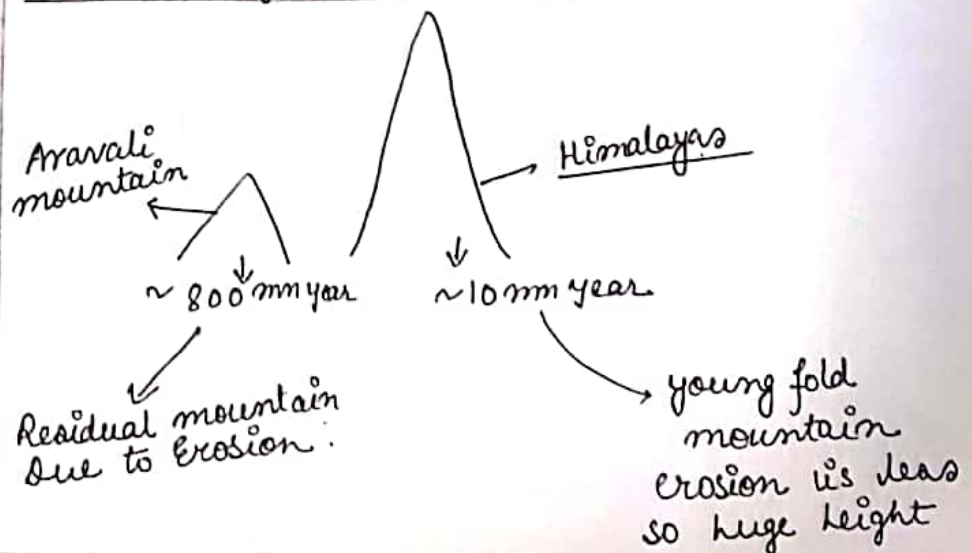 Aravali
mountain
Himalayas
~ 800 mn year
~10 mn year
Residual mountain
Due to Erosion.
young fold
mountain
erosion is less
so huge height